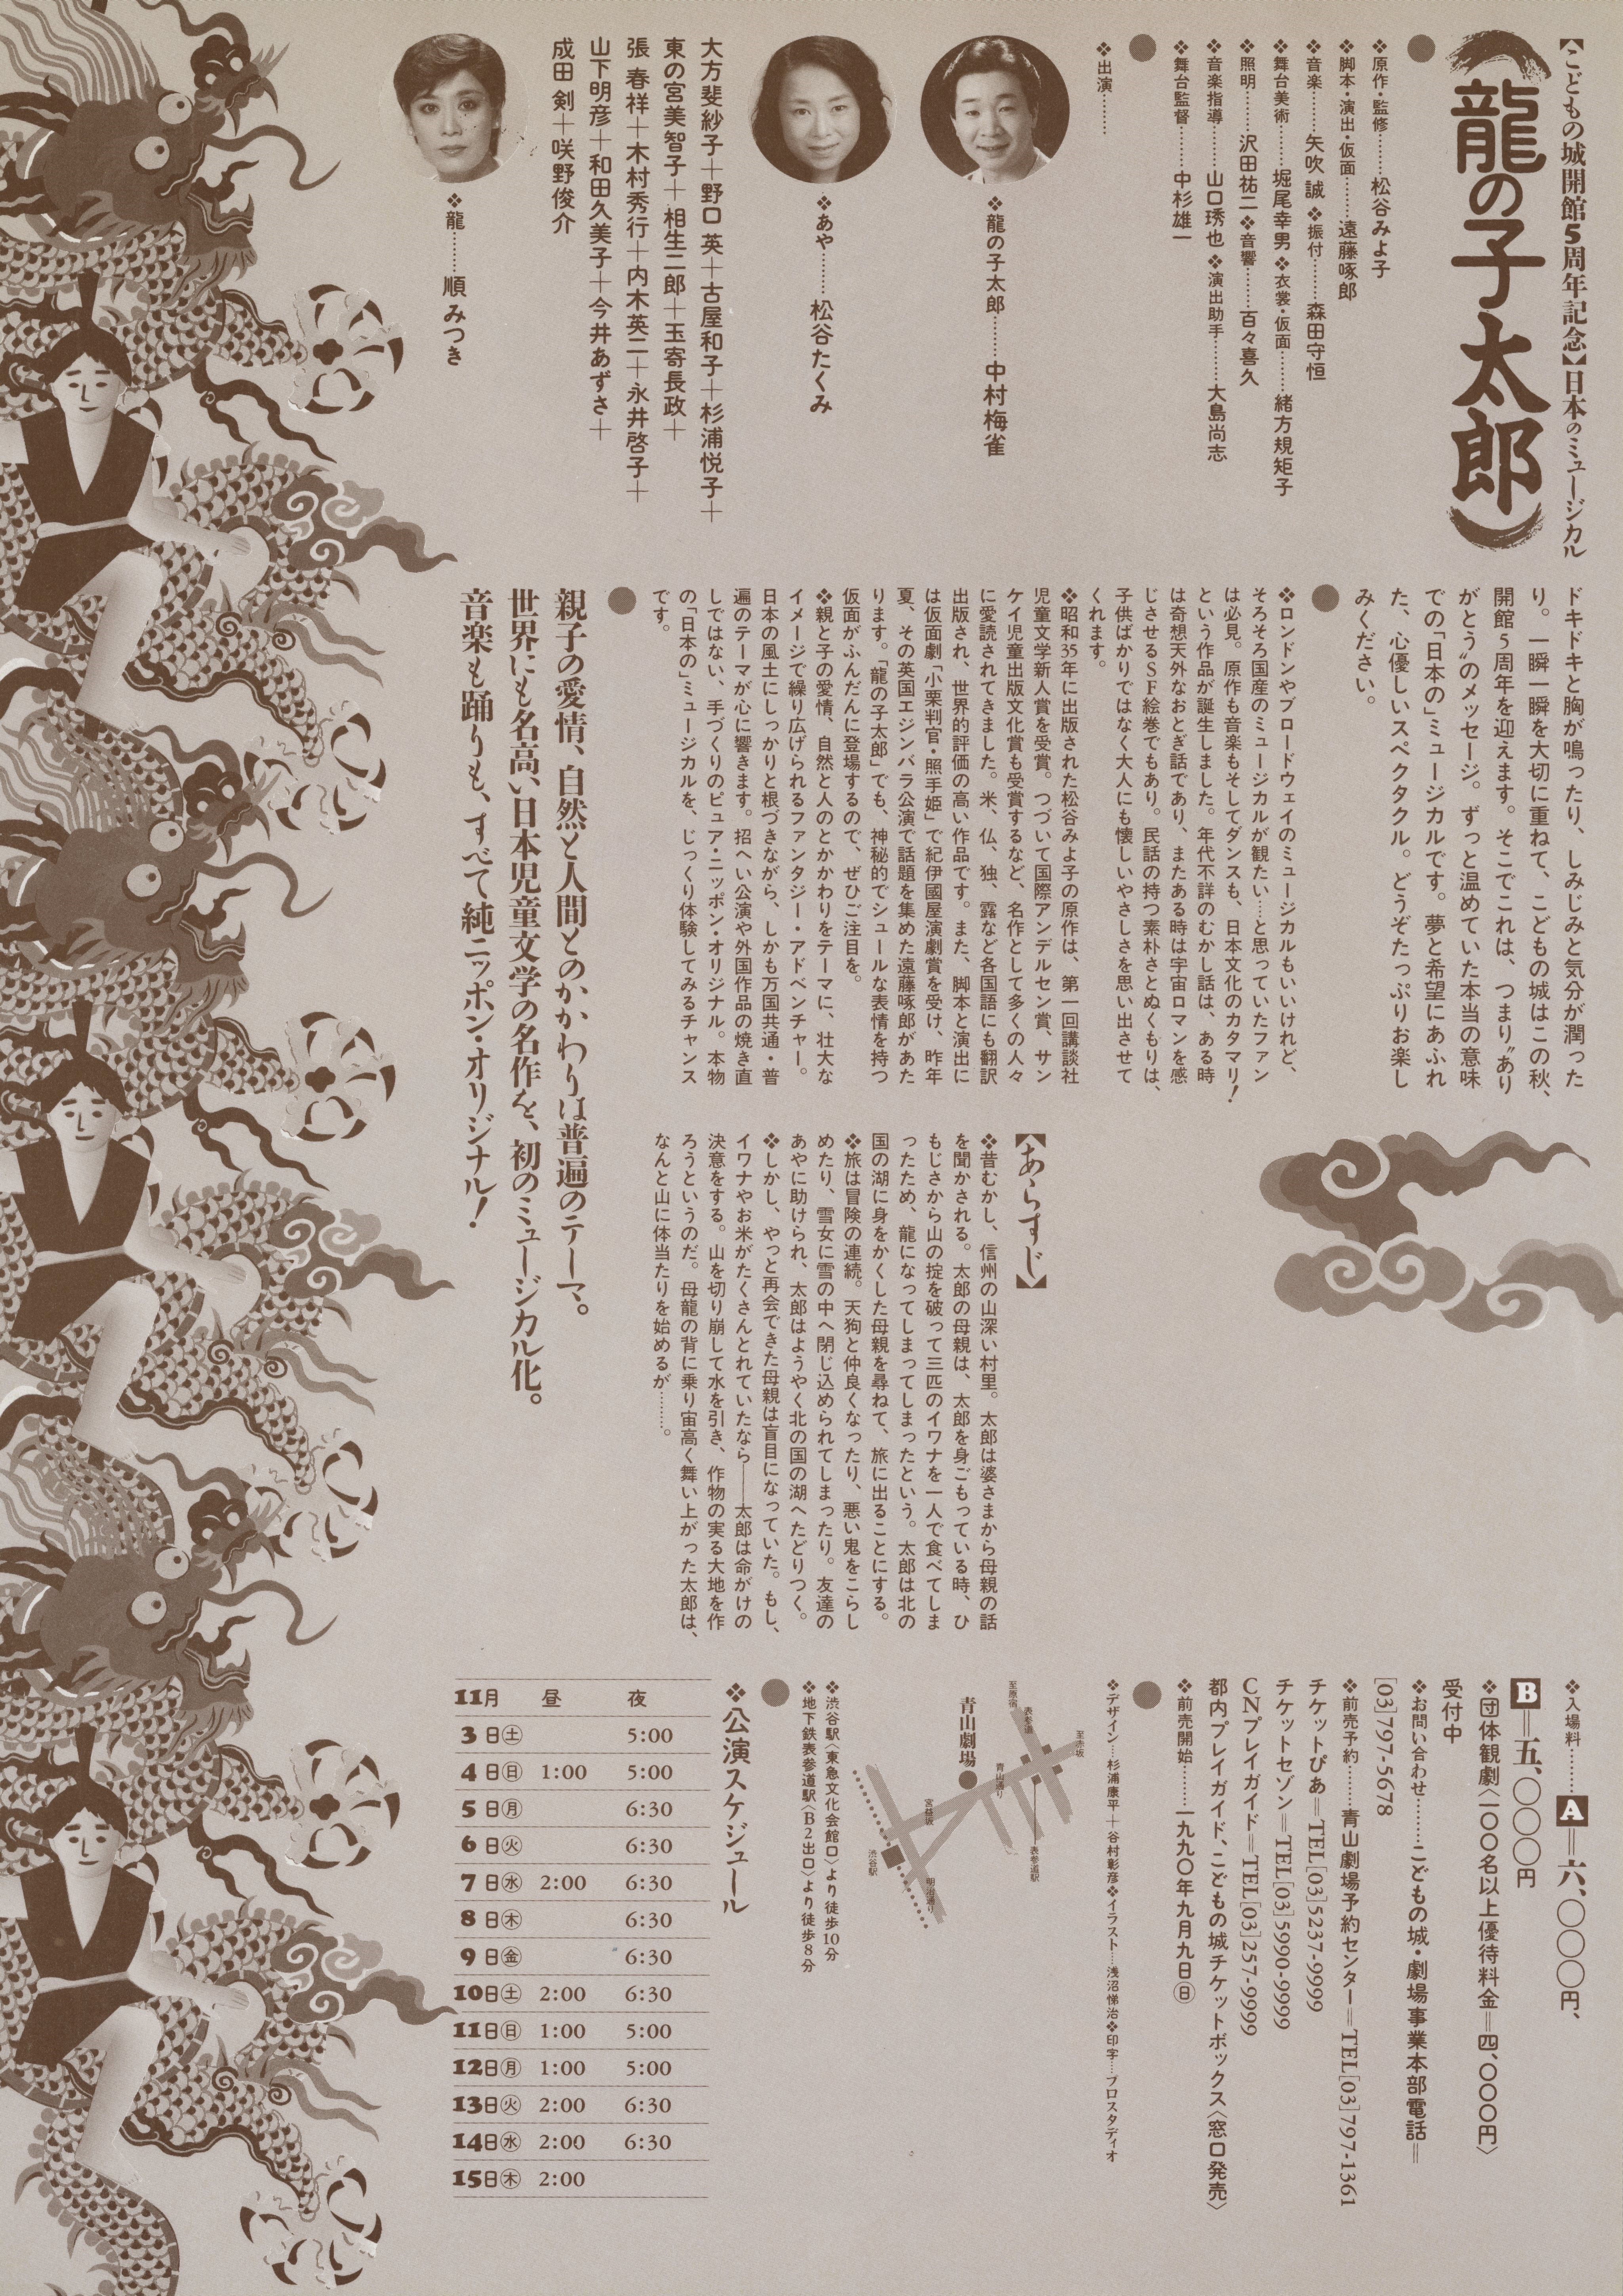 【こどもの城開館5周年記念】日本のミュージカル
龍の子太郎
❖原作・監修………松谷みよ子
❖脚本・演出・仮面……遠藤啄郎
❖音楽………矢吹 誠❖振付………森田守恒
❖舞台美術………堀尾幸男❖衣裳・仮面………緒方規矩子
❖照明………沢田祐二❖音響………百々喜久
❖音楽指導………山口琇也❖演出助手………大島尚志
❖舞台監督………中杉雄一
❖出演………
❖龍の子太郎………中村梅雀
❖あや………松谷たくみ
大方斐紗子＋野口 英＋古屋和子＋杉浦悦子＋
東の宮美智子＋相生二郎＋玉寄長政＋
張 春祥＋木村秀行＋内木英二＋永井啓子＋
山下明彦＋和田久美子＋今井あずさ＋
成田 剣＋咲野俊介
❖龍………順 みつき
ドキドキと胸が鳴ったり、しみじみと気分が潤った
り。一瞬一瞬を大切に重ねて、こどもの城はこの秋、
開館5周年を迎えます。そこでこれは、つまり〝あり
がとう〟のメッセージ。ずっと温めていた本当の意味
での「日本の」ミュージカルです。夢と希望にあふれ
た、心優しいスペクタクル。どうぞたっぷりお楽し
みください。
❖ロンドンやブロードウェイのミュージカルもいいけれど、
そろそろ国産のミュージカルが観たい…と思っていたファン
は必見。原作も音楽もそしてダンスも、日本文化のカタマリ!
という作品が誕生しました。年代不詳のむかし話は、ある時
は奇想天外なおとぎ話であり、またある時は宇宙ロマンを感
じさせるSF絵巻でもあり。民話の持つ素朴さとぬくもりは、
子供ばかりではなく大人にも懐しいやさしさを思い出させて
くれます。
❖昭和35年に出版された松谷みよ子の原作は、第一回講談社
児童文学新人賞を受賞。つづいて国際アンデルセン賞、サン
ケイ児童出版文化賞も受賞するなど、名作として多くの人々
に愛読されてきました。米、仏、独、露など各国語にも翻訳
出版され、世界的評価の高い作品です。また、脚本と演出に
は仮面劇「小栗判官・照手姫」で紀伊國屋演劇賞を受け、昨年
夏、その英国エジンバラ公演で話題を集めた遠藤啄郎があた
ります。「龍の子太郎」でも、神秘的でシュールな表情を持つ
仮面がふんだんに登場するので、ぜひご注目を。
❖親と子の愛情、自然と人のとかかわりをテーマに、壮大な
イメージで繰り広げられるファンタジー・アドベンチャー。
日本の風土にしっかりと根づきながら、しかも万国共通・普
遍のテーマが心に響きます。招へい公演や外国作品の焼き直
しではない、手づくりのピュア・ニッポン・オリジナル。本物
の「日本の」ミュージカルを、じっくり体験してみるチャンス
です。
親子の愛情、自然と人間とのかかわりは普遍のテーマ。
世界にも名高い日本児童文学の名作を、初のミュージカル化。
音楽も踊りも、すべて純ニッポン・オリジナル!
【あらすじ】
❖昔むかし、信州の山深い村里。太郎は婆さまから母親の話
を聞かされる。太郎の母親は、太郎を身ごもっている時、ひ
もじさから山の掟を破って三匹のイワナを一人で食べてしま
ったため、龍になってしまってしまったという。太郎は北の
国の湖に身をかくした母親を尋ねて、旅に出ることにする。
❖旅は冒険の連続。天狗と仲良くなったり、悪い鬼をこらし
めたり、雪女に雪の中へ閉じ込められてしまったり。友達の
あやに助けられ、太郎はようやく北の国の湖へたどりつく。
❖しかし、やっと再会できた母親は盲目になっていた。もし、
イワナやお米がたくさんとれていたなら――太郎は命がけの
決意をする。山を切り崩して水を引き、作物の実る大地を作
ろうというのだ。母龍の背に乗り宙高く舞い上がった太郎は、
なんと山に体当たりを始めるが……。
❖入場料………A＝六、〇〇〇円、
B＝五、〇〇〇円
❖団体観劇〈一〇〇名以上優待料金＝四、〇〇〇円〉
受付中
❖お問い合わせ………こどもの城・劇場事業本部電話＝
[03]797-5678
❖前売予約………青山劇場予約センター＝TEL[03]797-1361
チケットぴあ＝TEL[03]5237-9999
チケットセゾン＝TEL[03]5990-9999
CNプレイガイド＝TEL[03]257-9999
都内プレイガイド、こどもの城チケットボックス〈窓口発売〉
❖前売開始………一九九〇年九月九日㊐
❖デザイン…杉浦康平＋谷村彰彦❖イラスト…浅沼悌治❖印字…プロスタディオ
至赤坂
表参道
至原宿
青山通り
表参道駅
青山劇場
宮益坂
明治通り
渋谷駅
❖渋谷駅〈東急文化会館口〉より徒歩10分
❖地下鉄表参道駅〈B2出口〉より徒歩8分
❖公演スケジュール
11月 昼 夜
3日㊏ 5:00
4日㊐ 1:00 5:00
5日㊊ 6:30
6日㊋ 6:30
7日㊌ 2:00 6:30
8日㊍ 6:30
9日㊎ 6:30
10日㊏ 2:00 6:30
11日㊐ 1:00 5:00
12日㊊ 1:00 5:00
13日㊋ 2:00 6:30
14日㊌ 2:00 6:30
15日㊍ 2:00